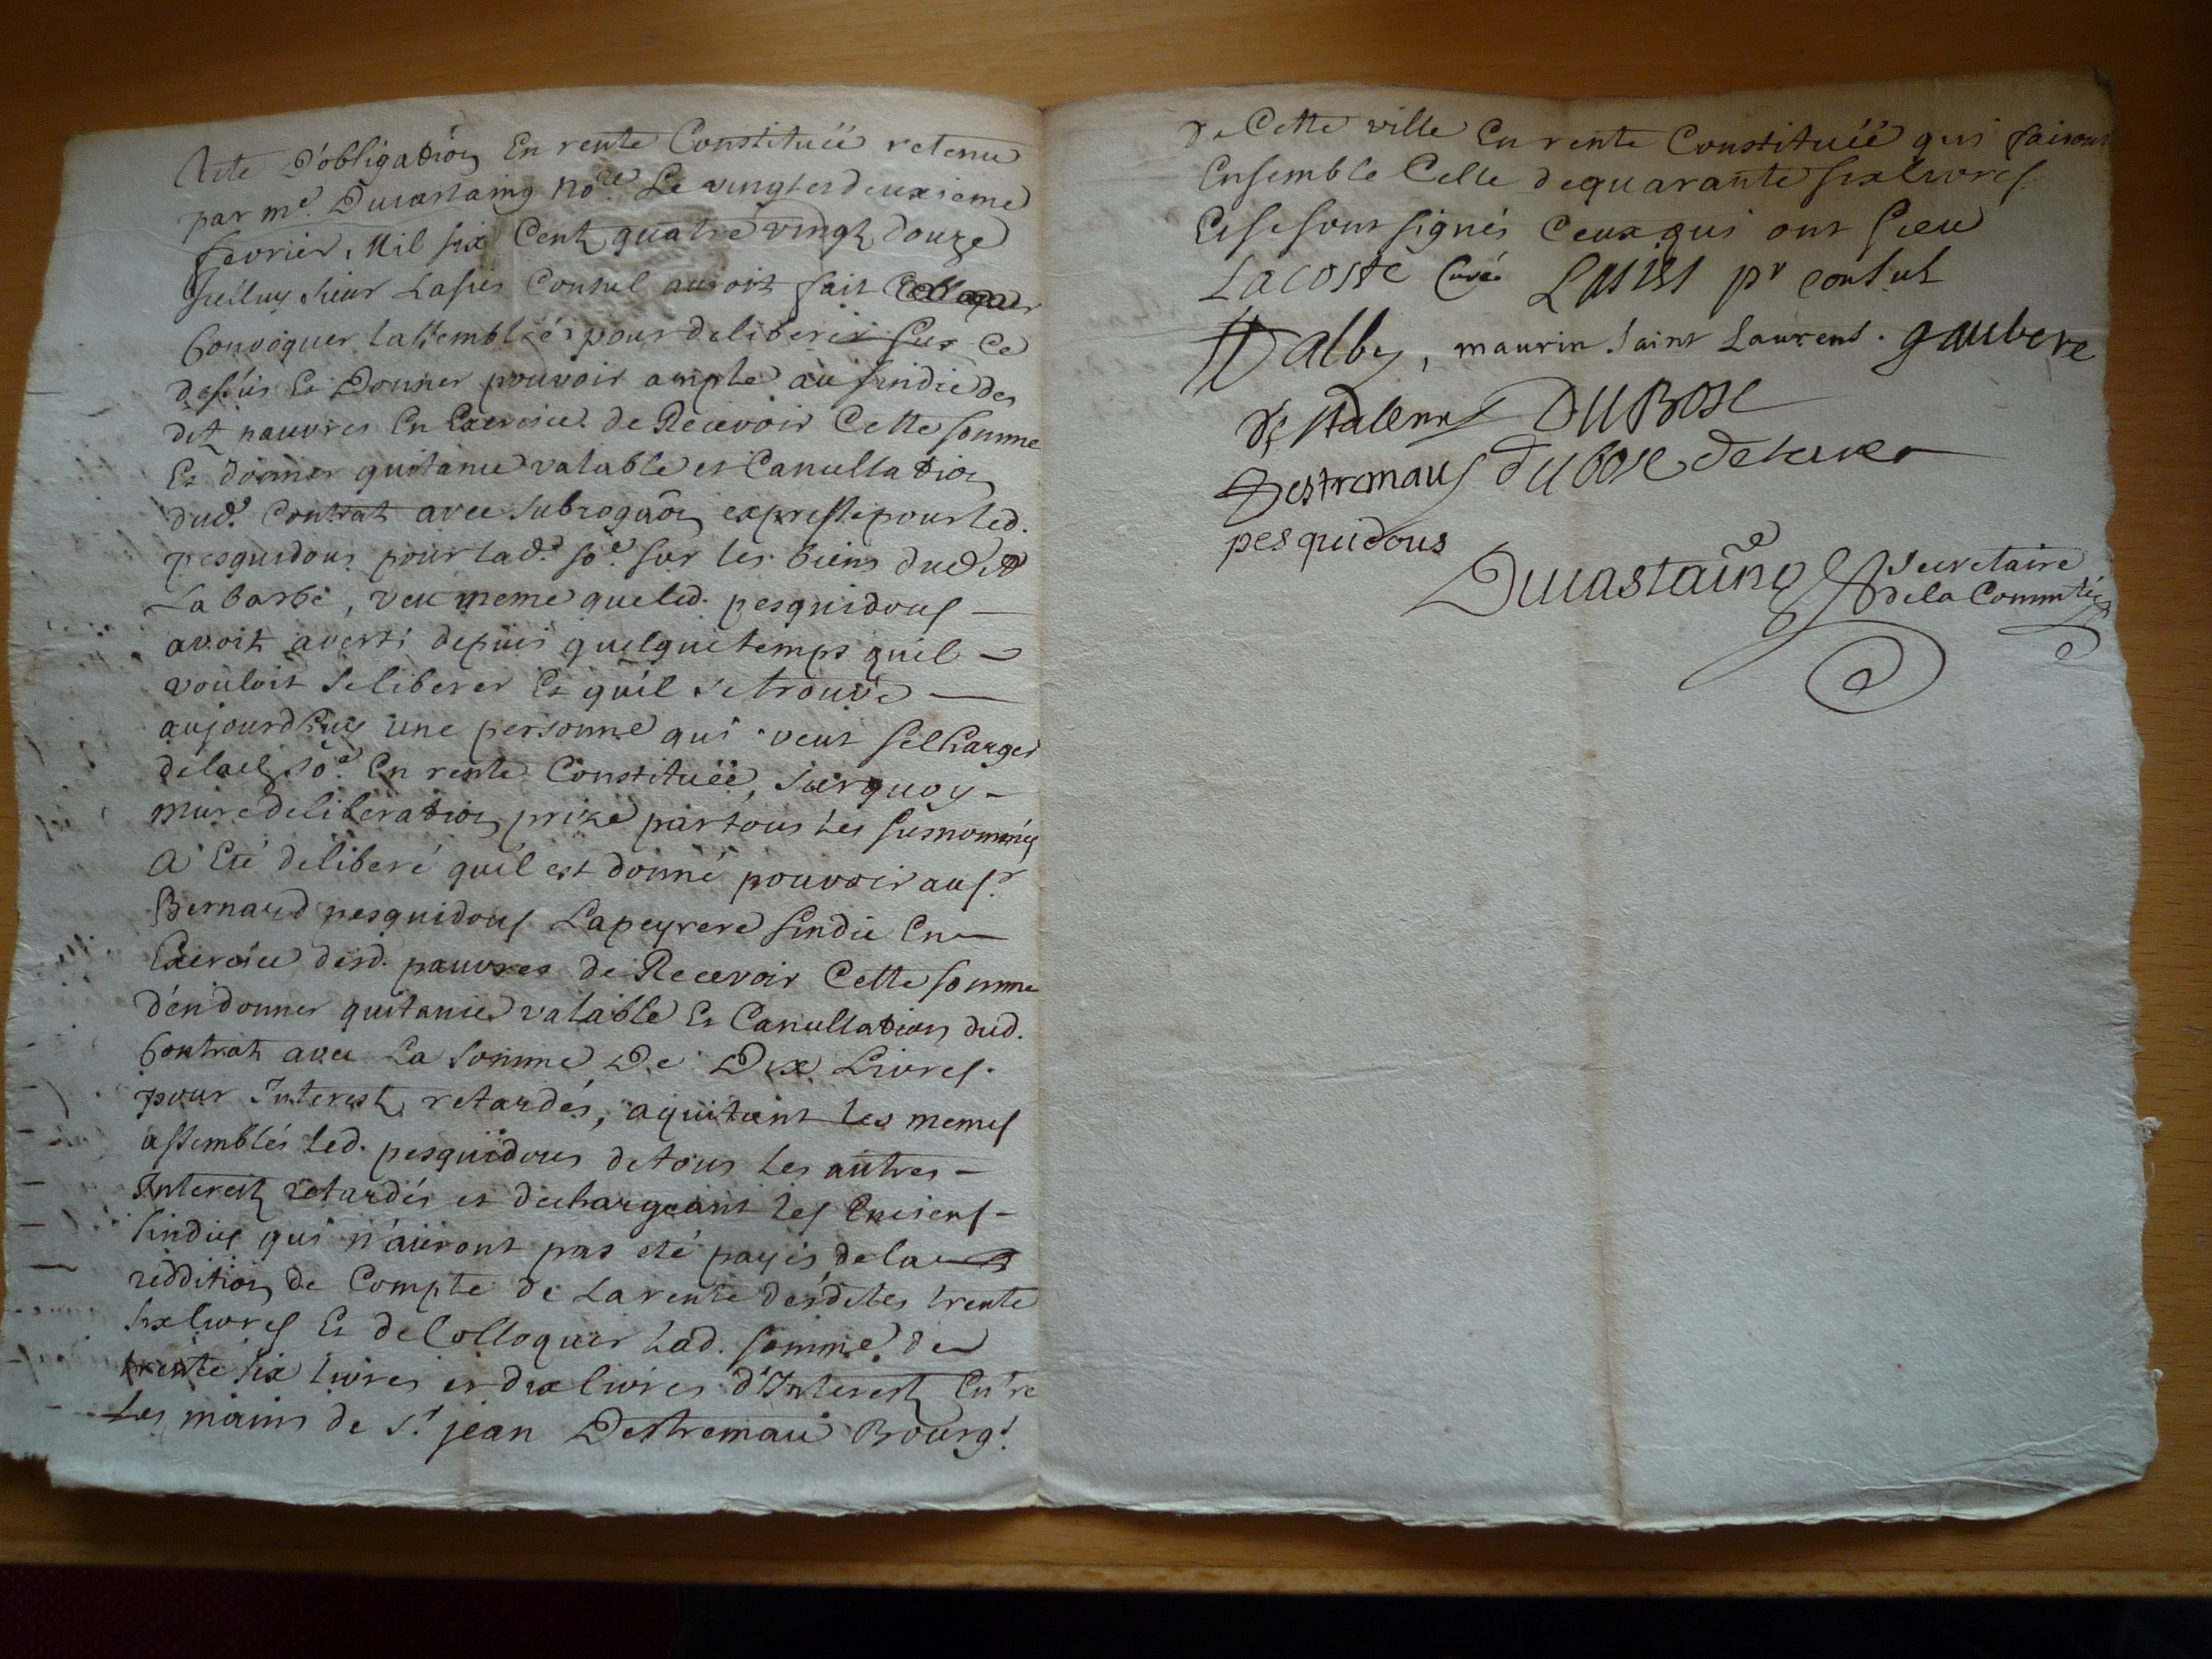 Acte D'obligation En rente Constituéé retenu
par me. Ducastaing nore. Le vingt et deuxieme
fevrier, Mil six Cent quatre vingt douze
Sieur Lasies Consul auroit fait
Convoquer lassembléé pour deliberer sur Ce
dessus Et Donner pouvoir ample au sindic des
dit pauvres En Exercice de Recevoir Cette somme
Et donner quitance valable et Canullation
dud. Contrat avec subrogaôn expresse pour led.
pesquidous pour lad. so.e sur les biens dudit
La barbé, veu meme que led. pesquidous
avoit averti depuis quelque temps quil
vouloit se liberer Et quil se trouve
aujourdhuy une personne qui veut se Charger
de lad. so.e En rente Constituéé, surquoy
mure deliberation prize par tous les susnommés
A Eté deliberé quil est donné pouvoir au sr.
Bernard pesquidous Lapeyrere sindic En
Exercice desd. pauvres de Recevoir Cette somme
d'en donner quitance valable Et Canullation dud.
Contrat avec La somme De Dix Livres.
pour Interest retardés, aquitant les memes
assemblés led. pesquidous de tous les autres
Interest retardés et dechargeant les Enciens
sindics qui n'auront pas eté payés de la
reddition de Compte de La rente desdites trente
six livres Et de Colloquer lad. somme de
trente six livres et dix livres d'Interest Entre
Les mains de sr. jean Destremau Bourgs.
De Cette ville En rente Constituéé qui fairont
Ensemble Celle de quarante six livres.
Et se sont signés Ceux qui ont sceu
Lacoste Curé Lasies pr consul
Dalby, maurin saint Laurens. gaubere
DUBOSC
Destremau dubosc
pesquidous
Ducastaing Secretaire
de la Commté